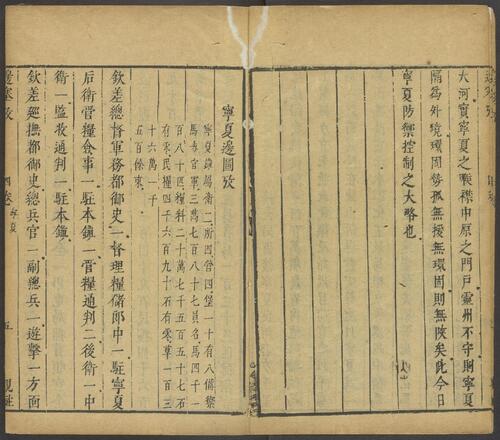 大河實寧夏之喉襟中原之門戶靈州不守則寧夏
隔為外境環固勢孤無援無環固則無陝矣此今日
寧夏防禦控制之大略也
寧夏邊圖攷
寧夏鎮屬衛二所四營四堡一十有八備禦
馬步官軍三萬七百八十七員名馬四千一
百八十四匹糧料二十萬七千五百五十七石
有零民糧四千六百九十石有零草一百三
十六萬一千
五百餘束
欽差總督軍務都御史一督理糧儲郎中一駐寧夏
后衛管糧僉事一駐本鎮一管糧通判二後衛一中
衛一監收通判一駐本鎮
欽差廵撫都御史總兵官一副總兵一遊擊一方面
邊塞攷
四卷 寧夏
五